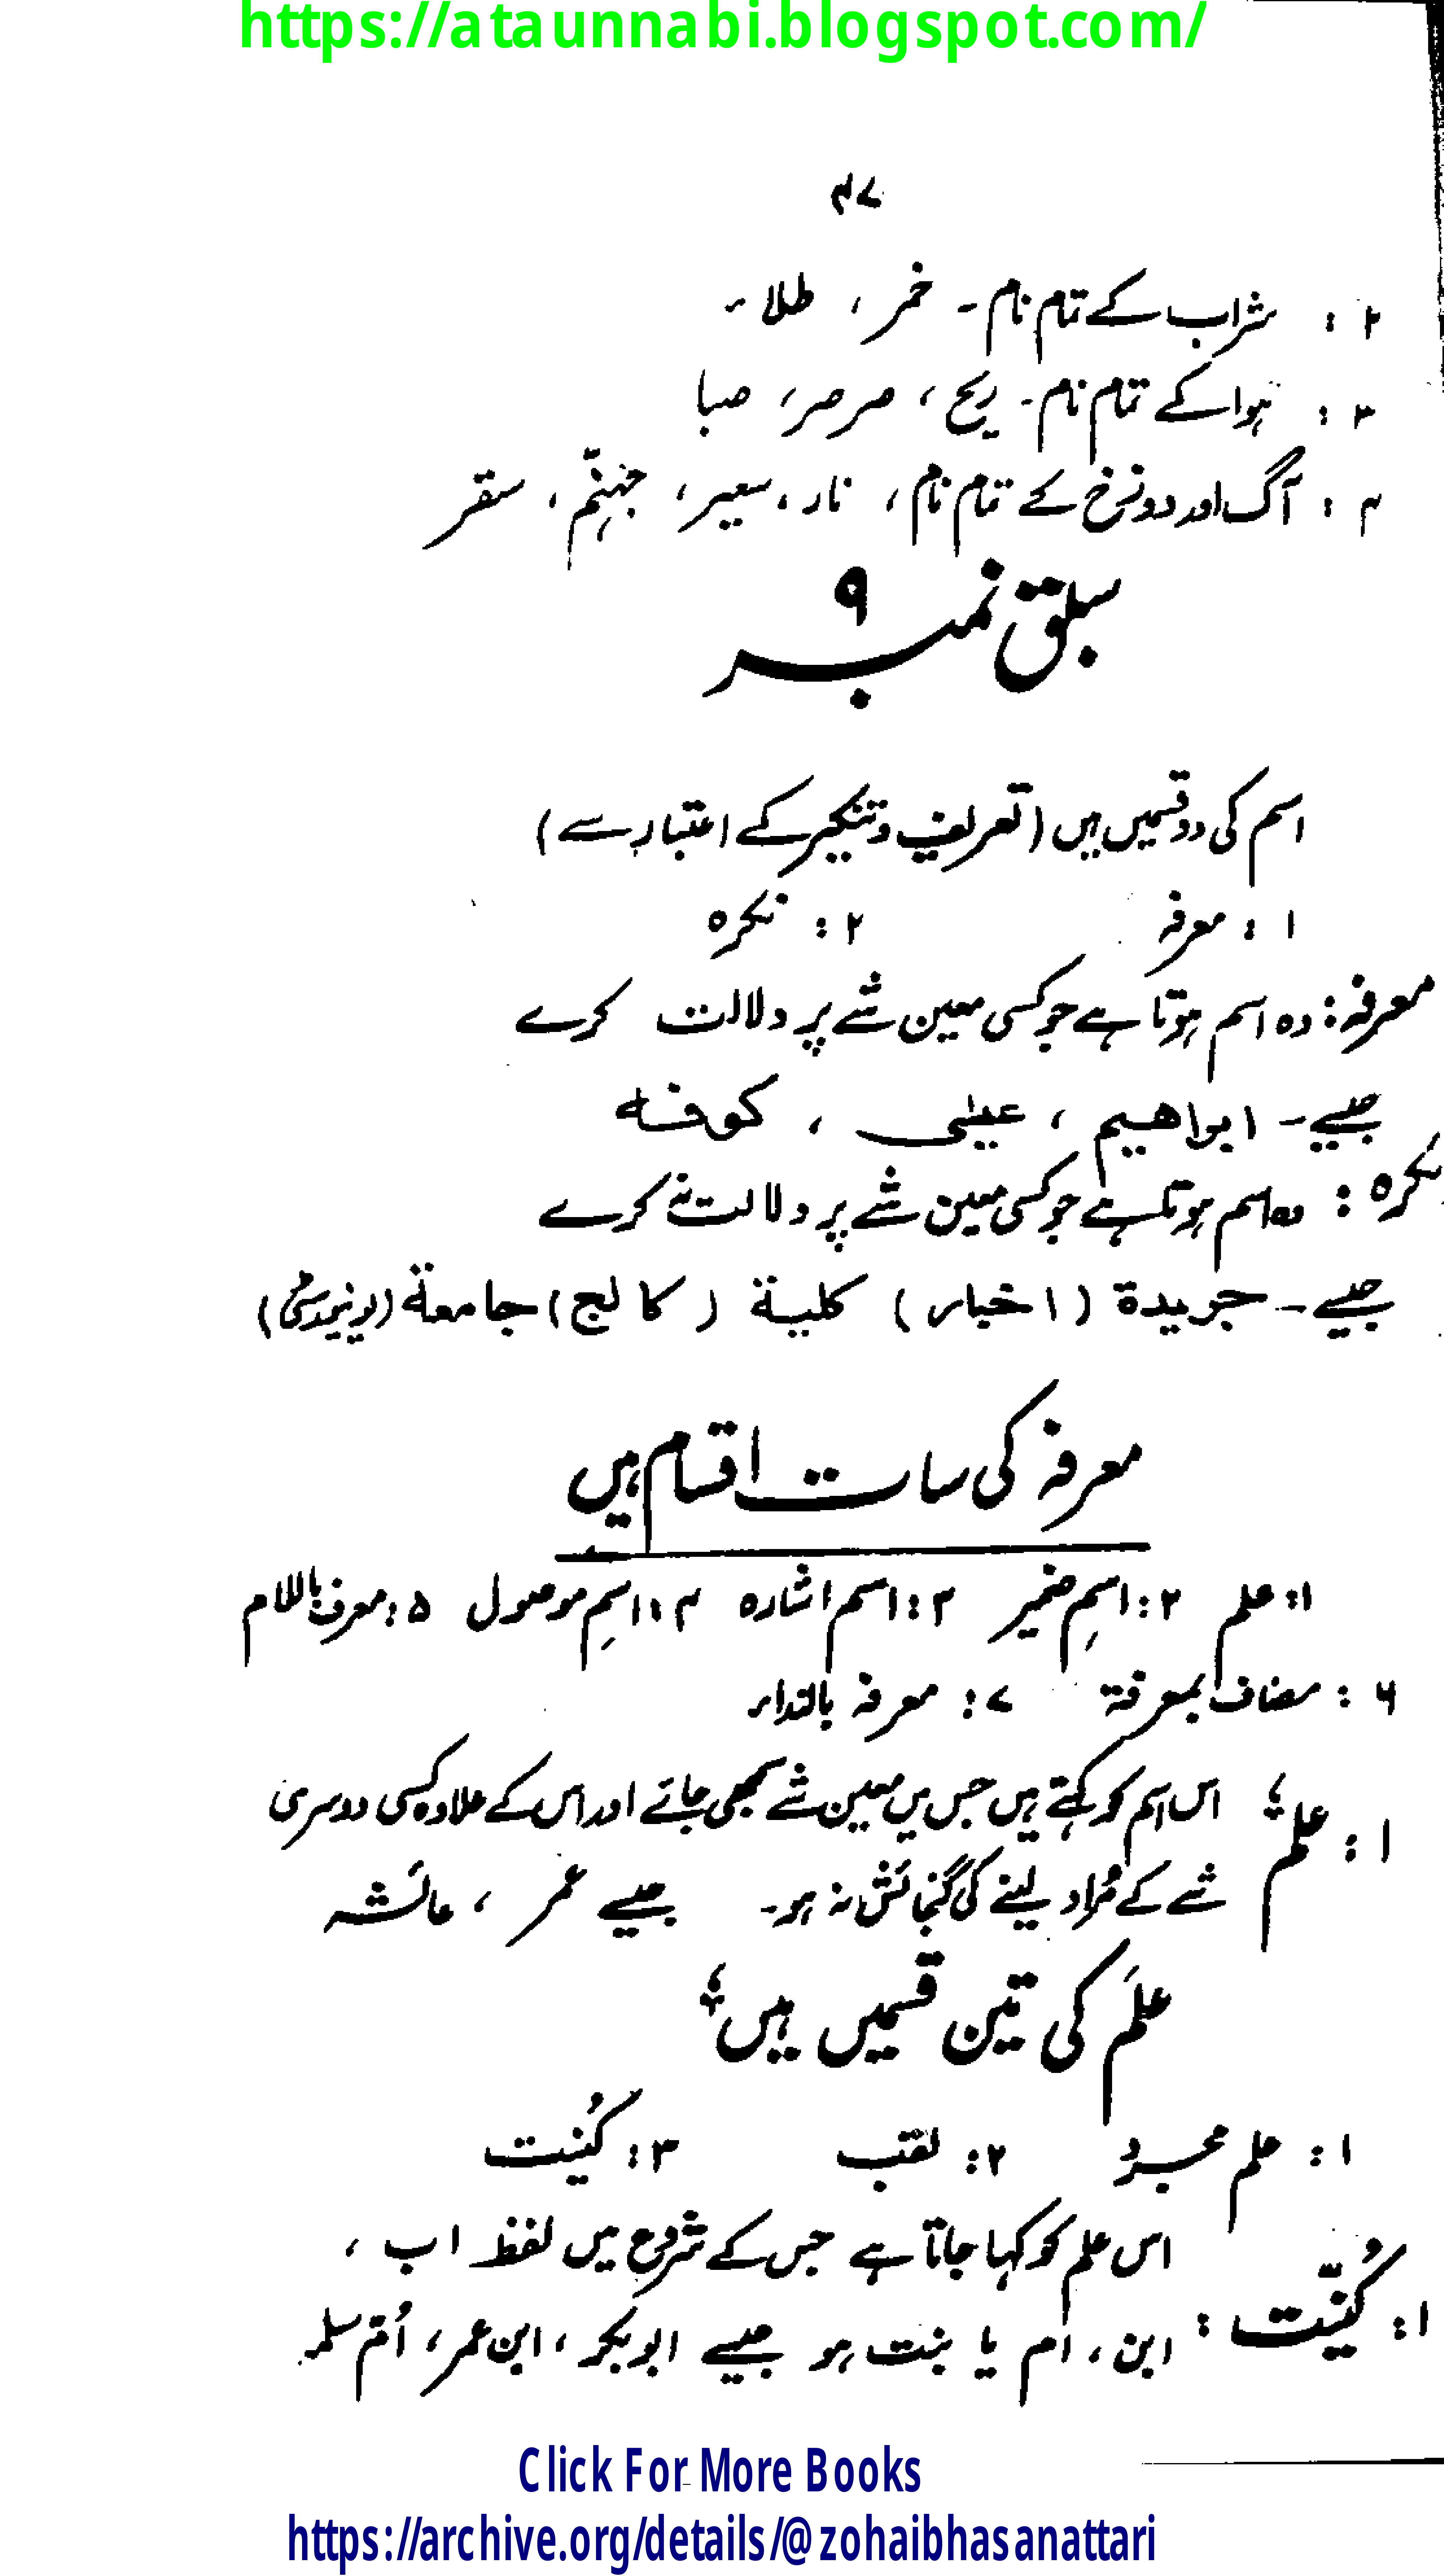 https://ataunnabi.blogspot.com/
۴۷
۲ : شراب کے تمام نام۔ خمر ، طلاء
۳ : ہوا کے تمام نام۔ ریح ، صرصر ، صبا
۴ : آگ اور دوزخ کے تمام نام ، نار ، سعیر ، جہنّم ، سقر
سبق نمبر ۹
اسم کی دو قسمیں ہیں (تعریف و تنکیر کے اعتبار سے)
۱ : معرفہ ۲ : نکرہ
معرفہ : وہ اسم ہوتا ہے جو کسی معین شے پر دلالت کرے
جیسے۔ ابراھیم ، عیسٰی ، کوفہ
نکرہ : وہ اسم ہوتا ہے جو کسی معین شے پر دلالت نہ کرے
جیسے۔ جریدة (اخبار) کلیة (کالج) جامعة (یونیورسٹی)
معرفہ کی سات اقسام ہیں
۱: علم ۲: اسمِ ضمیر ۳: اسم اشارہ ۴: اسمِ موصول ۵: معرف باللام
۶ : مضاف بمعرفة ۷ : معرفہ بالنداء
۱ : علم ؛ اس اسم کو کہتے ہیں جس میں معین شے سمجھی جائے اور اس کے علاوہ کسی دوسری
شے کے مُراد لینے کی گنجائش نہ ہو۔ جیسے عمر ، عائشہ
علَم کی تین قسمیں ہیں ؛
۱ : علم مجرد ۲ : لقب ۳ : کُنیت
۱ : کُنیّت : اس علم کو کہا جاتا ہے جس کے شروع میں لفظ اب ،
ابن ، ام یا بنت ہو جیسے ابوبکر ، ابن عمر ، اُمّ سلمہ
Click For More Books
https://archive.org/details/@zohaibhasanattari